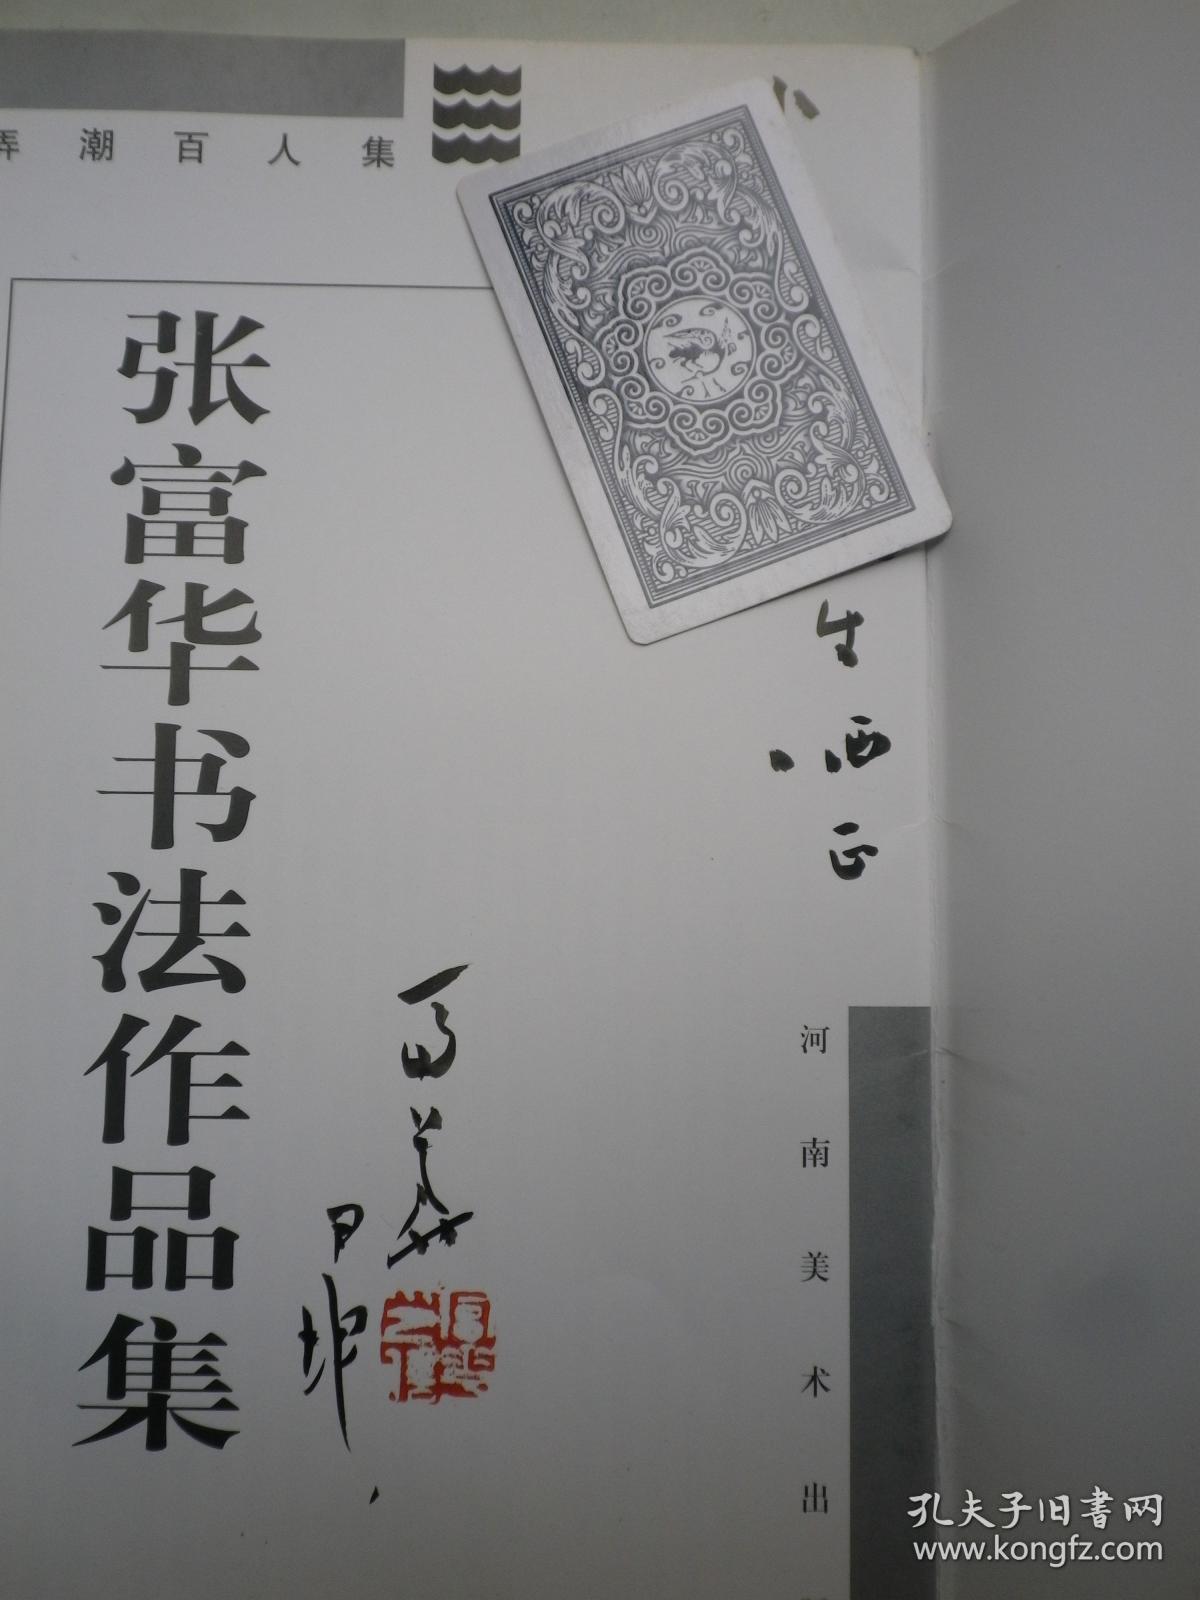 弄潮百人集
张富华书法作品集
生
哂正
富华
河南美术出
孔夫子旧书网
www.kongfz.com